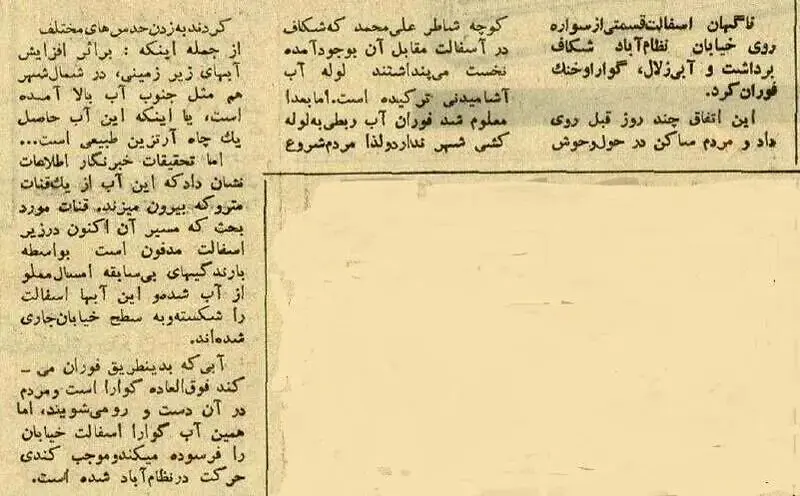 ناگهان اسفالت قسمتی از سواره
روی خیابان نظام‌آباد شکاف
برداشت و آبی زلال، گوارا وخنك
فوران کرد.
این اتفاق چند روز قبل روی
داد و مردم ساکن در حول‌وحوش
کوچه شاطر علی‌محمد که‌شکاف
در آسفالت مقابل آن بوجودآمده
نخست می‌پنداشتند لوله آب
آشامیدنی ترکیده است.امابعدا
معلوم شد فوران آب ربطی‌به‌لوله
کشی شهر نداردولذا مردم‌شروع
کردندبه‌زدن‌حدس‌های‌مختلف
از جمله اینکه : براثر افزایش
آبهای زیر زمینی، در شمال‌شهر
هم مثل جنوب آب بالا آمده
است، یا اینکه این آب حاصل
یك چاه آرتزین طبیعی است...
اما تحقیقات خبرنگار اطلاعات
نشان دادکه این آب از یك‌قنات
متروکه بیرون میزند. قنات مورد
بحث که مسیر آن اکنون درزیر
اسفالت مدفون است بواسطه
بارندگیهای بی‌سابقه امسال‌مملو
از آب شده‌و این آبها اسفالت
را شکسته‌وبه سطح خیابان‌جاری
شده‌اند.
آبی‌که بدینطریق فوران می ـ
کند فوق‌العاده گوارا است ومردم
در آن دست و رو می‌شویند، اما
همین آب گوارا اسفالت خیابان
را فرسوده میکندوموجب کندی
حرکت درنظام‌آباد شده است.